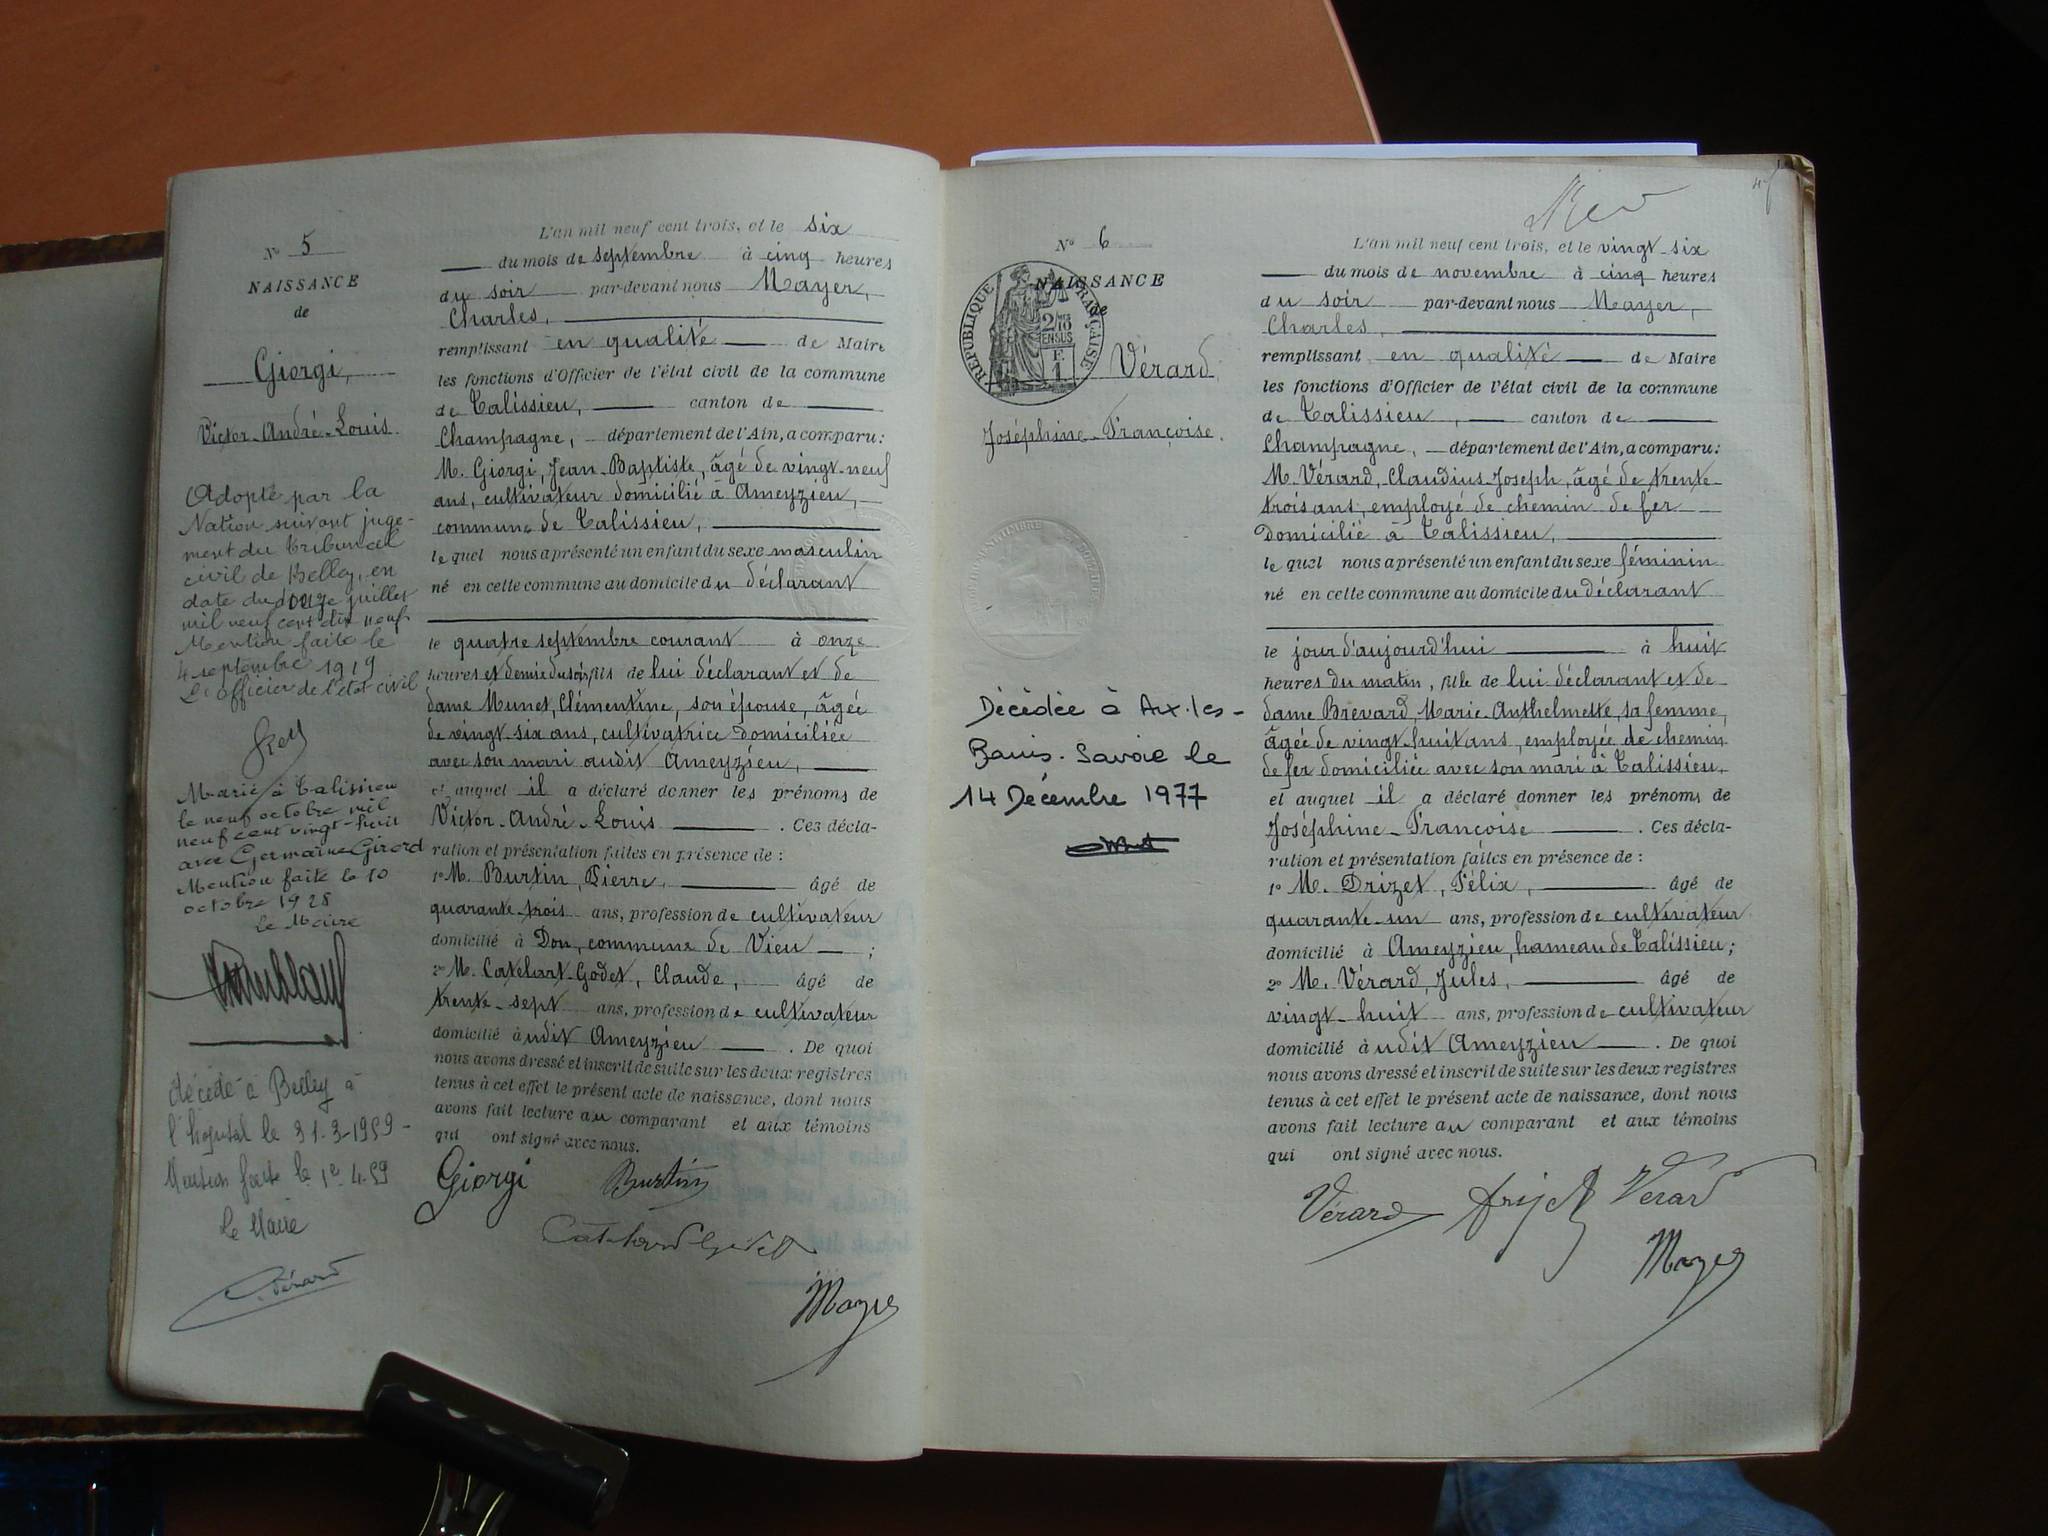 N° 5
NAISSANCE
de
Giorgi,
Victor-André-Louis.
Adopté par la
Nation suivant juge-
ment du Tribunal
civil de Belley, en
date du douze juillet
mil neuf cent dix neuf
Mention faite le
4 septembre 1919
L'officier de l'état civil
Marié à Talissieu
le neuf octobre mil
neuf cent vingt-huit
avec Germaine Girord
Mention faite le 10
octobre 1928
le Maire
décédé à Belley à
l'hopital le 31-3-1959-
Mention faite le 1er 4.59
Le Maire
Vérard
L'an mil neuf cent trois, et le six
du mois de septembre à cinq heures
du soir par-devant nous Mayer,
Charles,
remplissant en qualité de Maire
les fonctions d'Officier de l'état civil de la commune
de Talissieu, canton de
Champagne, département de l'Ain, a comparu:
M. Giorgi, Jean-Baptiste, âgé de vingt-neuf
ans, cultivateur domicilié à Ameyzieu,
commune de Talissieu,
lequel nous a présenté un enfant du sexe masculin
né en cette commune au domicile du déclarant
le quatre septembre courant à onze
heures et demie du soir, fils de lui déclarant et de
dame Munet, Clémentine, son épouse, âgée
de vingt-six ans, cultivatrice domiciliée
avec son mari audit Ameyzieu,
et auquel il a déclaré donner les prénoms de
Victor-André-Louis. Ces décla-
ration et présentation faites en présence de:
1° M. Burtin, Pierre, âgé de
quarante-trois ans, profession de cultivateur
domicilié à Don, commune de Vieu;
2° M. Catelart-Godet, Claude, âgé de
trente-sept ans, profession de cultivateur
domicilié àudit Ameyzieu. De quoi
nous avons dressé et inscrit de suite sur les deux registres
tenus à cet effet le présent acte de naissance, dont nous
avons fait lecture au comparant et aux témoins
qui ont signé avec nous.
Giorgi Burtin
Mayer
N° 6
NAISSANCE
de
RÉPUBLIQUE FRANÇAISE
2/10 EN SUS
Vérard
Joséphine-Françoise.
Décédée à Aix-les-
Bains. Savoie le
14 Décembre 1977
L'an mil neuf cent trois, et le vingt six
du mois de novembre à cinq heures
du soir par-devant nous Mayer,
Charles,
remplissant en qualité de Maire
les fonctions d'Officier de l'état civil de la commune
de Talissieu, canton de
Champagne, département de l'Ain, a comparu:
M. Vérard, Claudius-Joseph, âgé de trente-
trois ans, employé de chemin de fer
domicilié à Talissieu,
lequel nous a présenté un enfant du sexe féminin
né en cette commune au domicile du déclarant
le jour d'aujourd'hui à huit
heures du matin, fille de lui déclarant et de
dame Brevard, Marie-Anthelmette, sa femme,
âgée de vingt-huit ans, employée de chemin
de fer domiciliée avec son mari à Talissieu,
et auquel il a déclaré donner les prénoms de
Joséphine-Françoise. Ces décla-
ration et présentation faites en présence de:
1° M. Drizet, Félix, âgé de
quarante-un ans, profession de cultivateur
domicilié à Ameyzieu, hameau de Talissieu;
2° M. Vérard, Jules, âgé de
vingt-huit ans, profession de cultivateur
domicilié àudit Ameyzieu. De quoi
nous avons dressé et inscrit de suite sur les deux registres
tenus à cet effet le présent acte de naissance, dont nous
avons fait lecture au comparant et aux témoins
qui ont signé avec nous.
Vérard Drizet Verard
Mayer